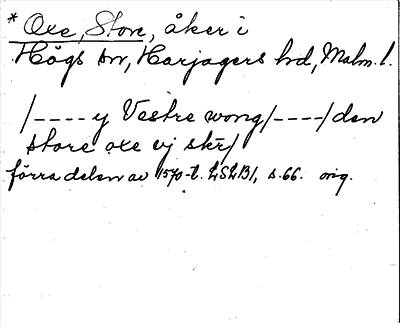 * Oxe, Store, åker i
Högs sn, Harjagers hd, Malm. l.
/---- y Vestre wong/----/den
store oxe vj skr/
förra delen av 1570-t. LSLB1, s.66. orig.